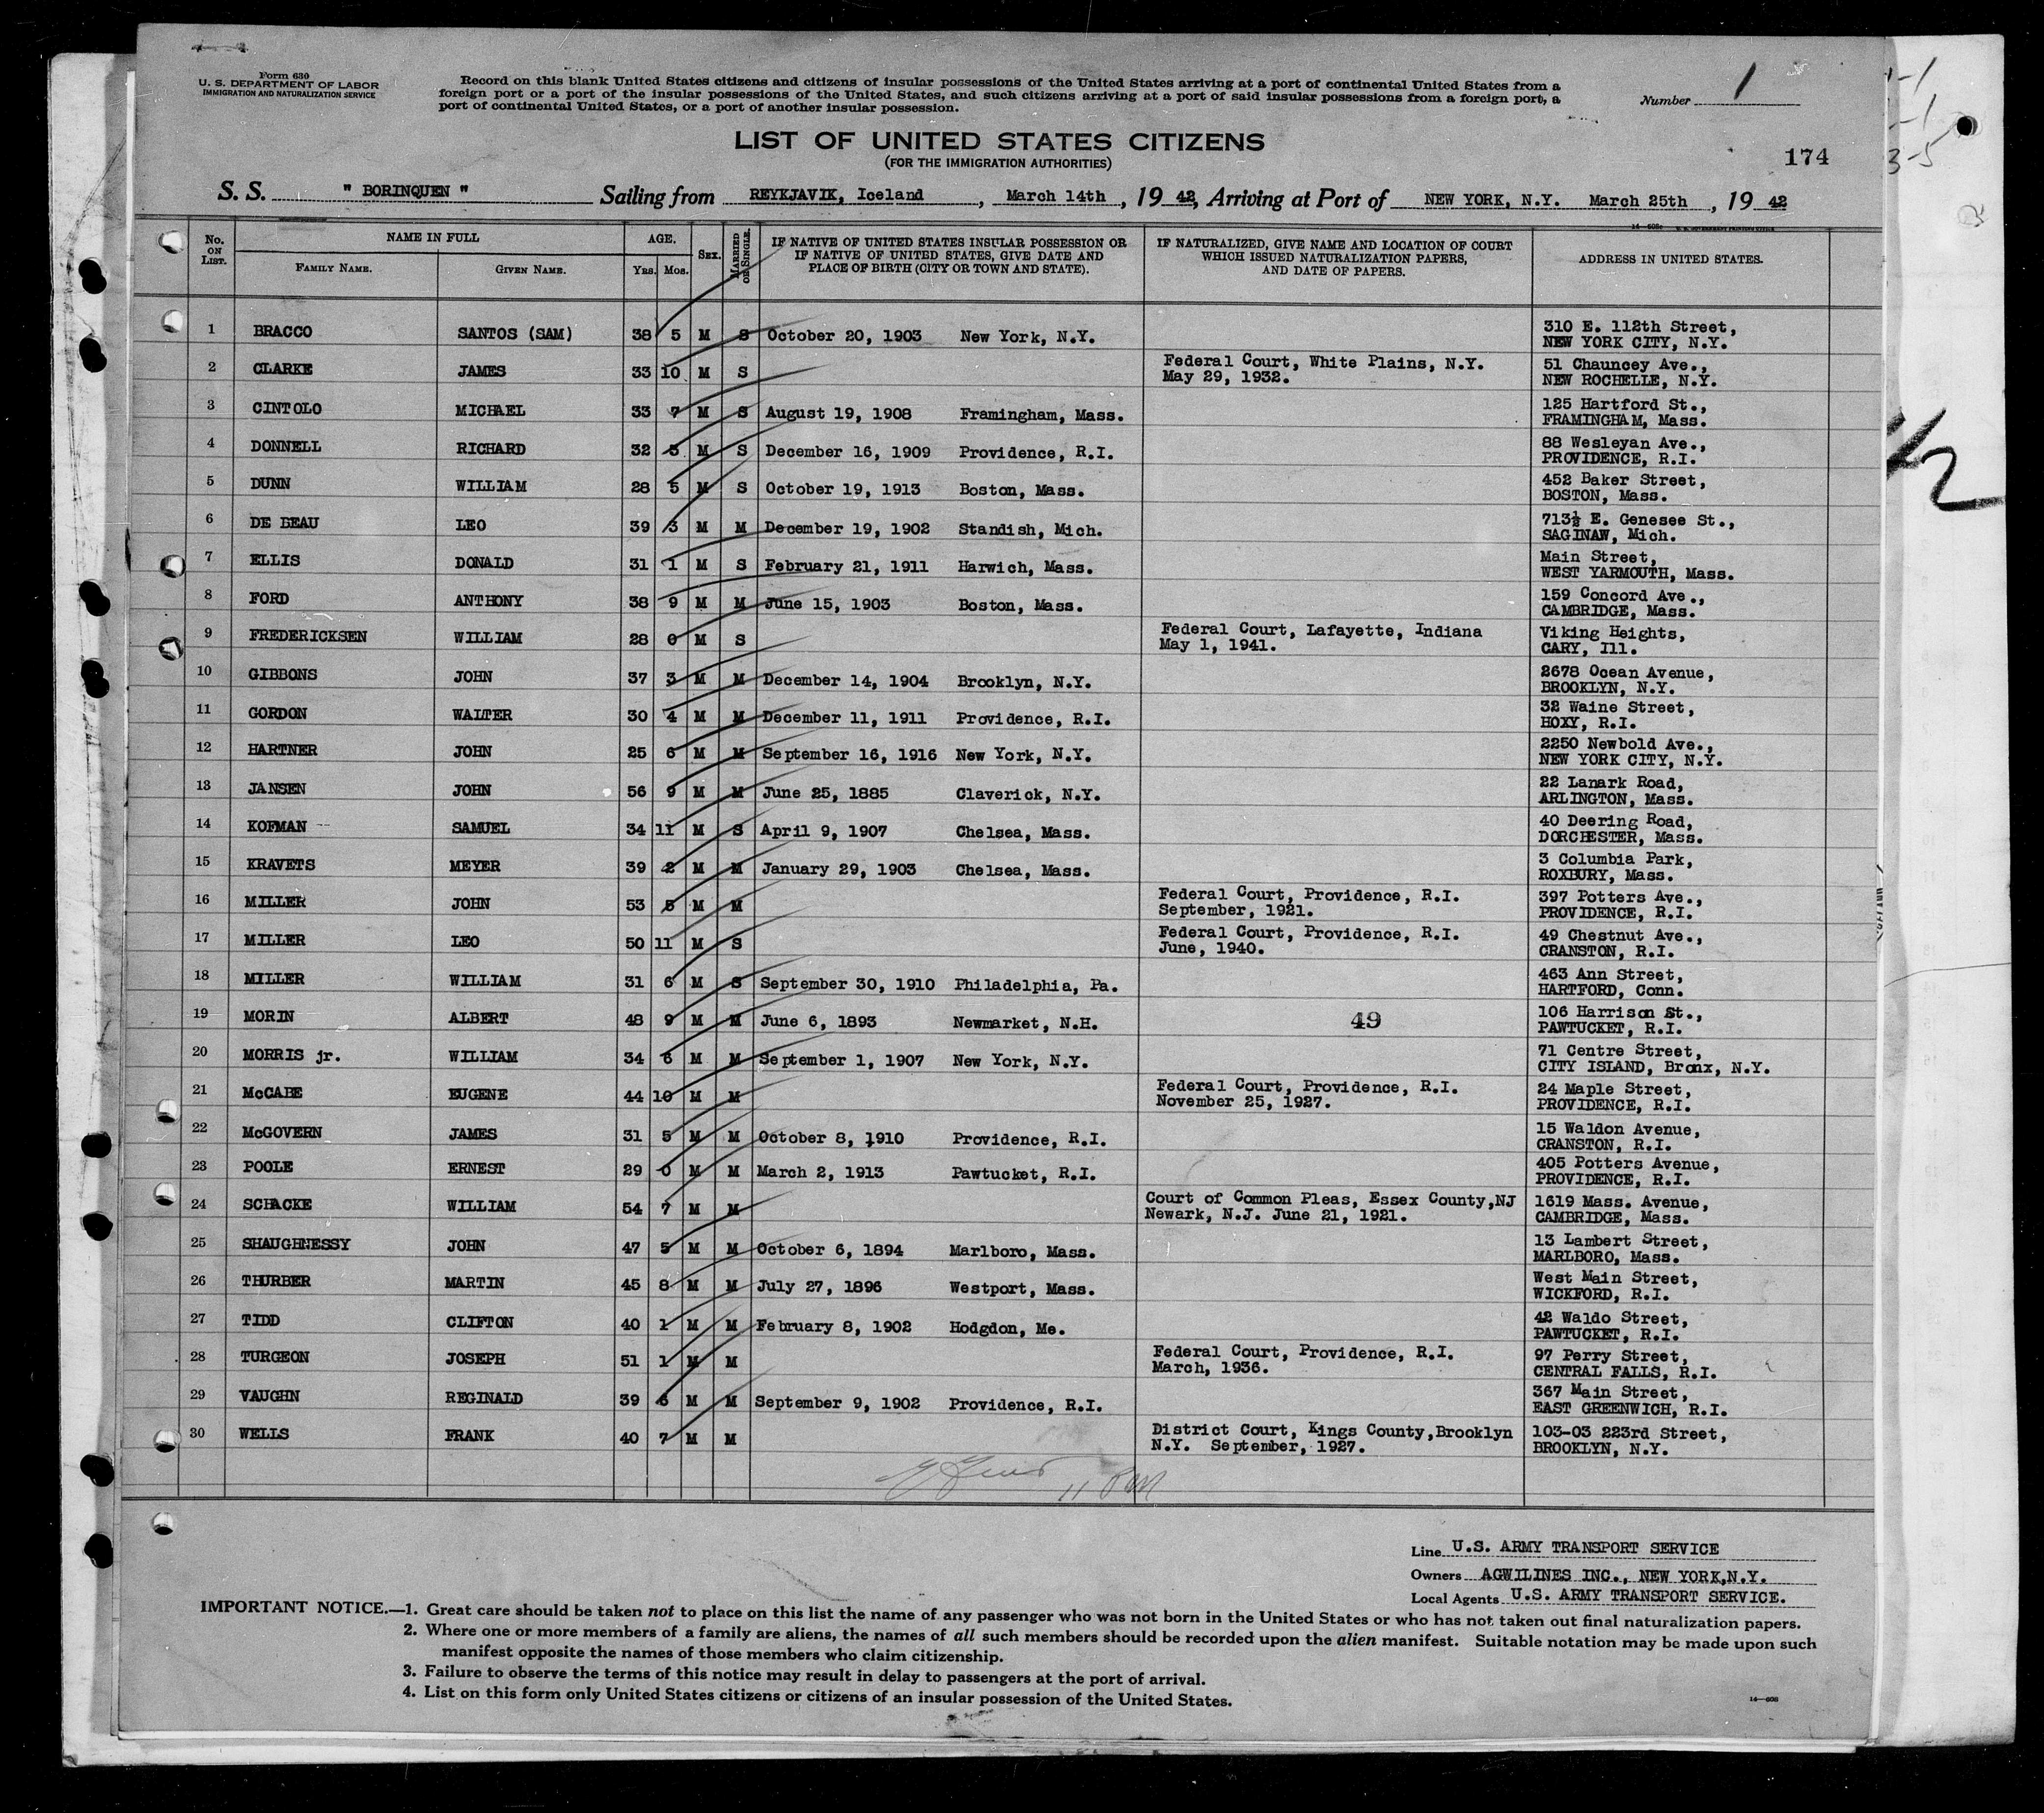 Form 630
U. S. DEPARTMENT OF LABOR
IMMIGRATION AND NATURALIZATION SERVICE
Record on this blank United States citizens and citizens of insular possessions of the United States arriving at a port of continental United States from a
foreign port or a port of the insular possessions of the United States, and such citizens arriving at a port of said insular possessions from a foreign port, a
port of continental United States, or a port of another insular possession.
Number 1
LIST OF UNITED STATES CITIZENS
(FOR THE IMMIGRATION AUTHORITIES)
174
S. S. " BORINQUEN " Sailing from REYKJAVIK, Iceland, March 14th, 19 42, Arriving at Port of NEW YORK, N.Y. March 25th, 19 42
No. ON LIST. NAME IN FULL AGE. SEX. MARRIED OR SINGLE. IF NATIVE OF UNITED STATES INSULAR POSSESSION OR IF NATIVE OF UNITED STATES, GIVE DATE AND PLACE OF BIRTH (CITY OR TOWN AND STATE). IF NATURALIZED, GIVE NAME AND LOCATION OF COURT WHICH ISSUED NATURALIZATION PAPERS, AND DATE OF PAPERS. ADDRESS IN UNITED STATES.
FAMILY NAME. GIVEN NAME. Yrs. Mos.
1 BRACCO SANTOS (SAM) 38 5 M S October 20, 1903 New York, N.Y. 310 E. 112th Street,
NEW YORK CITY, N.Y.
2 CLARKE JAMES 33 10 M S Federal Court, White Plains, N.Y. 51 Chauncey Ave.,
May 29, 1932. NEW ROCHELLE, N.Y.
3 CINTOLO MICHAEL 33 7 M S August 19, 1908 Framingham, Mass. 125 Hartford St.,
FRAMINGHAM, Mass.
4 DONNELL RICHARD 32 3 M S December 16, 1909 Providence, R.I. 88 Wesleyan Ave.,
PROVIDENCE, R.I.
5 DUNN WILLIAM 28 5 M S October 19, 1913 Boston, Mass. 452 Baker Street,
BOSTON, Mass.
6 DE BEAU LEO 39 3 M M December 19, 1902 Standish, Mich. 713½ E. Genesee St.,
SAGINAW, Mich.
7 ELLIS DONALD 31 1 M S February 21, 1911 Harwich, Mass. Main Street,
WEST YARMOUTH, Mass.
8 FORD ANTHONY 38 9 M M June 15, 1903 Boston, Mass. 159 Concord Ave.,
CAMBRIDGE, Mass.
9 FREDERICKSEN WILLIAM 28 0 M S Federal Court, Lafayette, Indiana Viking Heights,
May 1, 1941. CARY, Ill.
10 GIBBONS JOHN 37 3 M M December 14, 1904 Brooklyn, N.Y. 2678 Ocean Avenue,
BROOKLYN, N.Y.
11 GORDON WALTER 30 4 M M December 11, 1911 Providence, R.I. 32 Waine Street,
HOXY, R.I.
12 HARTNER JOHN 25 6 M M September 16, 1916 New York, N.Y. 2250 Newbold Ave.,
NEW YORK CITY, N.Y.
13 JANSEN JOHN 56 9 M M June 25, 1885 Claverick, N.Y. 22 Lanark Road,
ARLINGTON, Mass.
14 KOFMAN SAMUEL 34 11 M S April 9, 1907 Chelsea, Mass. 40 Deering Road,
DORCHESTER, Mass.
15 KRAVETS MEYER 39 2 M M January 29, 1903 Chelsea, Mass. 3 Columbia Park,
ROXBURY, Mass.
16 MILLER JOHN 53 5 M M Federal Court, Providence, R.I. 397 Potters Ave.,
September, 1921. PROVIDENCE, R.I.
17 MILLER LEO 50 11 M S Federal Court, Providence, R.I. 49 Chestnut Ave.,
June, 1940. CRANSTON, R.I.
18 MILLER WILLIAM 31 6 M S September 30, 1910 Philadelphia, Pa. 463 Ann Street,
HARTFORD, Conn.
19 MORIN ALBERT 48 9 M M June 6, 1893 Newmarket, N.H. 49 106 Harrison St.,
PAWTUCKET, R.I.
20 MORRIS jr. WILLIAM 34 6 M M September 1, 1907 New York, N.Y. 71 Centre Street,
CITY ISLAND, Bronx, N.Y.
21 McCABE EUGENE 44 10 M M Federal Court, Providence, R.I. 24 Maple Street,
November 25, 1927. PROVIDENCE, R.I.
22 McGOVERN JAMES 31 5 M M October 8, 1910 Providence, R.I. 15 Waldon Avenue,
CRANSTON, R.I.
23 POOLE ERNEST 29 0 M M March 2, 1913 Pawtucket, R.I. 405 Potters Avenue,
PROVIDENCE, R.I.
24 SCHACKE WILLIAM 54 7 M M Court of Common Pleas, Essex County,NJ 1619 Mass. Avenue,
Newark, N.J. June 21, 1921. CAMBRIDGE, Mass.
25 SHAUGHNESSY JOHN 47 5 M M October 6, 1894 Marlboro, Mass. 13 Lambert Street,
MARLBORO, Mass.
26 THURBER MARTIN 45 8 M M July 27, 1896 Westport, Mass. West Main Street,
WICKFORD, R.I.
27 TIDD CLIFTON 40 1 M M February 8, 1902 Hodgdon, Me. 42 Waldo Street,
PAWTUCKET, R.I.
28 TURGEON JOSEPH 51 1 M M Federal Court, Providence, R.I. 97 Perry Street,
March, 1936. CENTRAL FALLS, R.I.
29 VAUGHN REGINALD 39 6 M M September 9, 1902 Providence, R.I. 367 Main Street,
EAST GREENWICH, R.I.
30 WELLS FRANK 40 7 M M District Court, Kings County,Brooklyn 103-03 223rd Street,
N.Y. September, 1927. BROOKLYN, N.Y.
Line U.S. ARMY TRANSPORT SERVICE
Owners AGWILINES INC., NEW YORK,N.Y.
Local Agents U.S. ARMY TRANSPORT SERVICE.
IMPORTANT NOTICE.—1. Great care should be taken not to place on this list the name of any passenger who was not born in the United States or who has not taken out final naturalization papers.
2. Where one or more members of a family are aliens, the names of all such members should be recorded upon the alien manifest. Suitable notation may be made upon such
manifest opposite the names of those members who claim citizenship.
3. Failure to observe the terms of this notice may result in delay to passengers at the port of arrival.
4. List on this form only United States citizens or citizens of an insular possession of the United States.
14—608